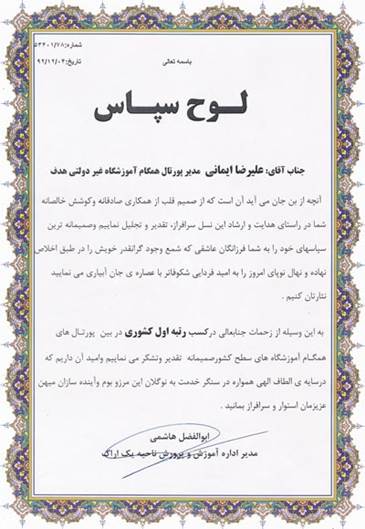 شماره: ۵۳۴۰۱/۷۸
باسمه تعالی
تاریخ: ۹۲/۱۲/۰۳
لوح سپاس
جناب آقای: علیرضا ایمانی مدیر پورتال همگام آموزشگاه غیر دولتی هدف
آنچه از بن جان می آید آن است که از صمیم قلب از همکاری صادقانه وکوشش خالصانه
شما در راستای هدایت و ارشاد این نسل سرافراز، تقدیر و تجلیل نماییم وصمیمانه ترین
سپاسهای خود را به شما فرزانگان عاشقی که شمع وجود گرانقدر خویش را در طبق اخلاص
نهاده و نهال نوپای امروز را به امید فردایی شکوفاتر با عصاره ی جان آبیاری می نمایید
نثارتان کنیم.
به این وسیله از زحمات جنابعالی درکسب رتبه اول کشوری در بین پورتال های
همگـام آموزشگاه های سطح کشورصمیمانه تقدیر وتشکر می نماییم وامید آن داریم که
درسایه ی الطاف الهی همواره در سنگر خدمت به نوگلان این مرزو بوم وآینده سازان میهن
عزیزمان استوار و سرافراز بمانید.
ابوالفضل هاشمی
مدیر اداره آموزش و پرورش ناحیه یک اراک